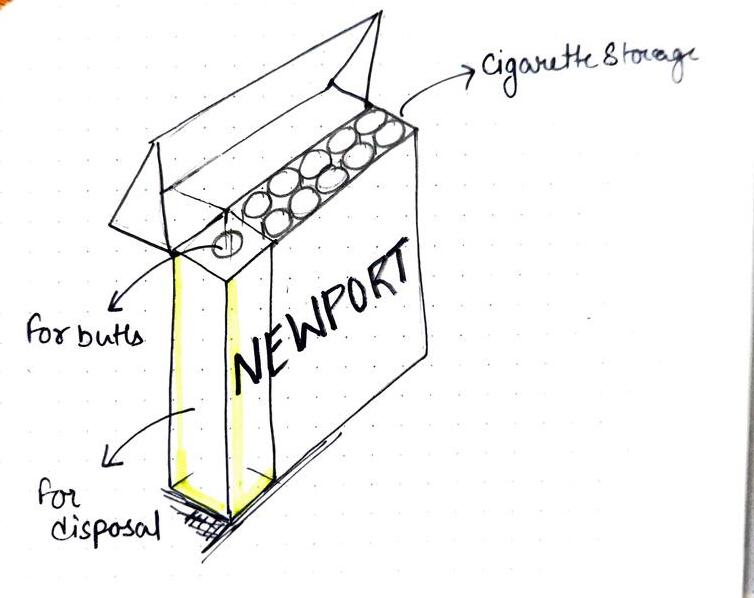 Cigarette Storage
NEWPORT
For butts
For
disposal